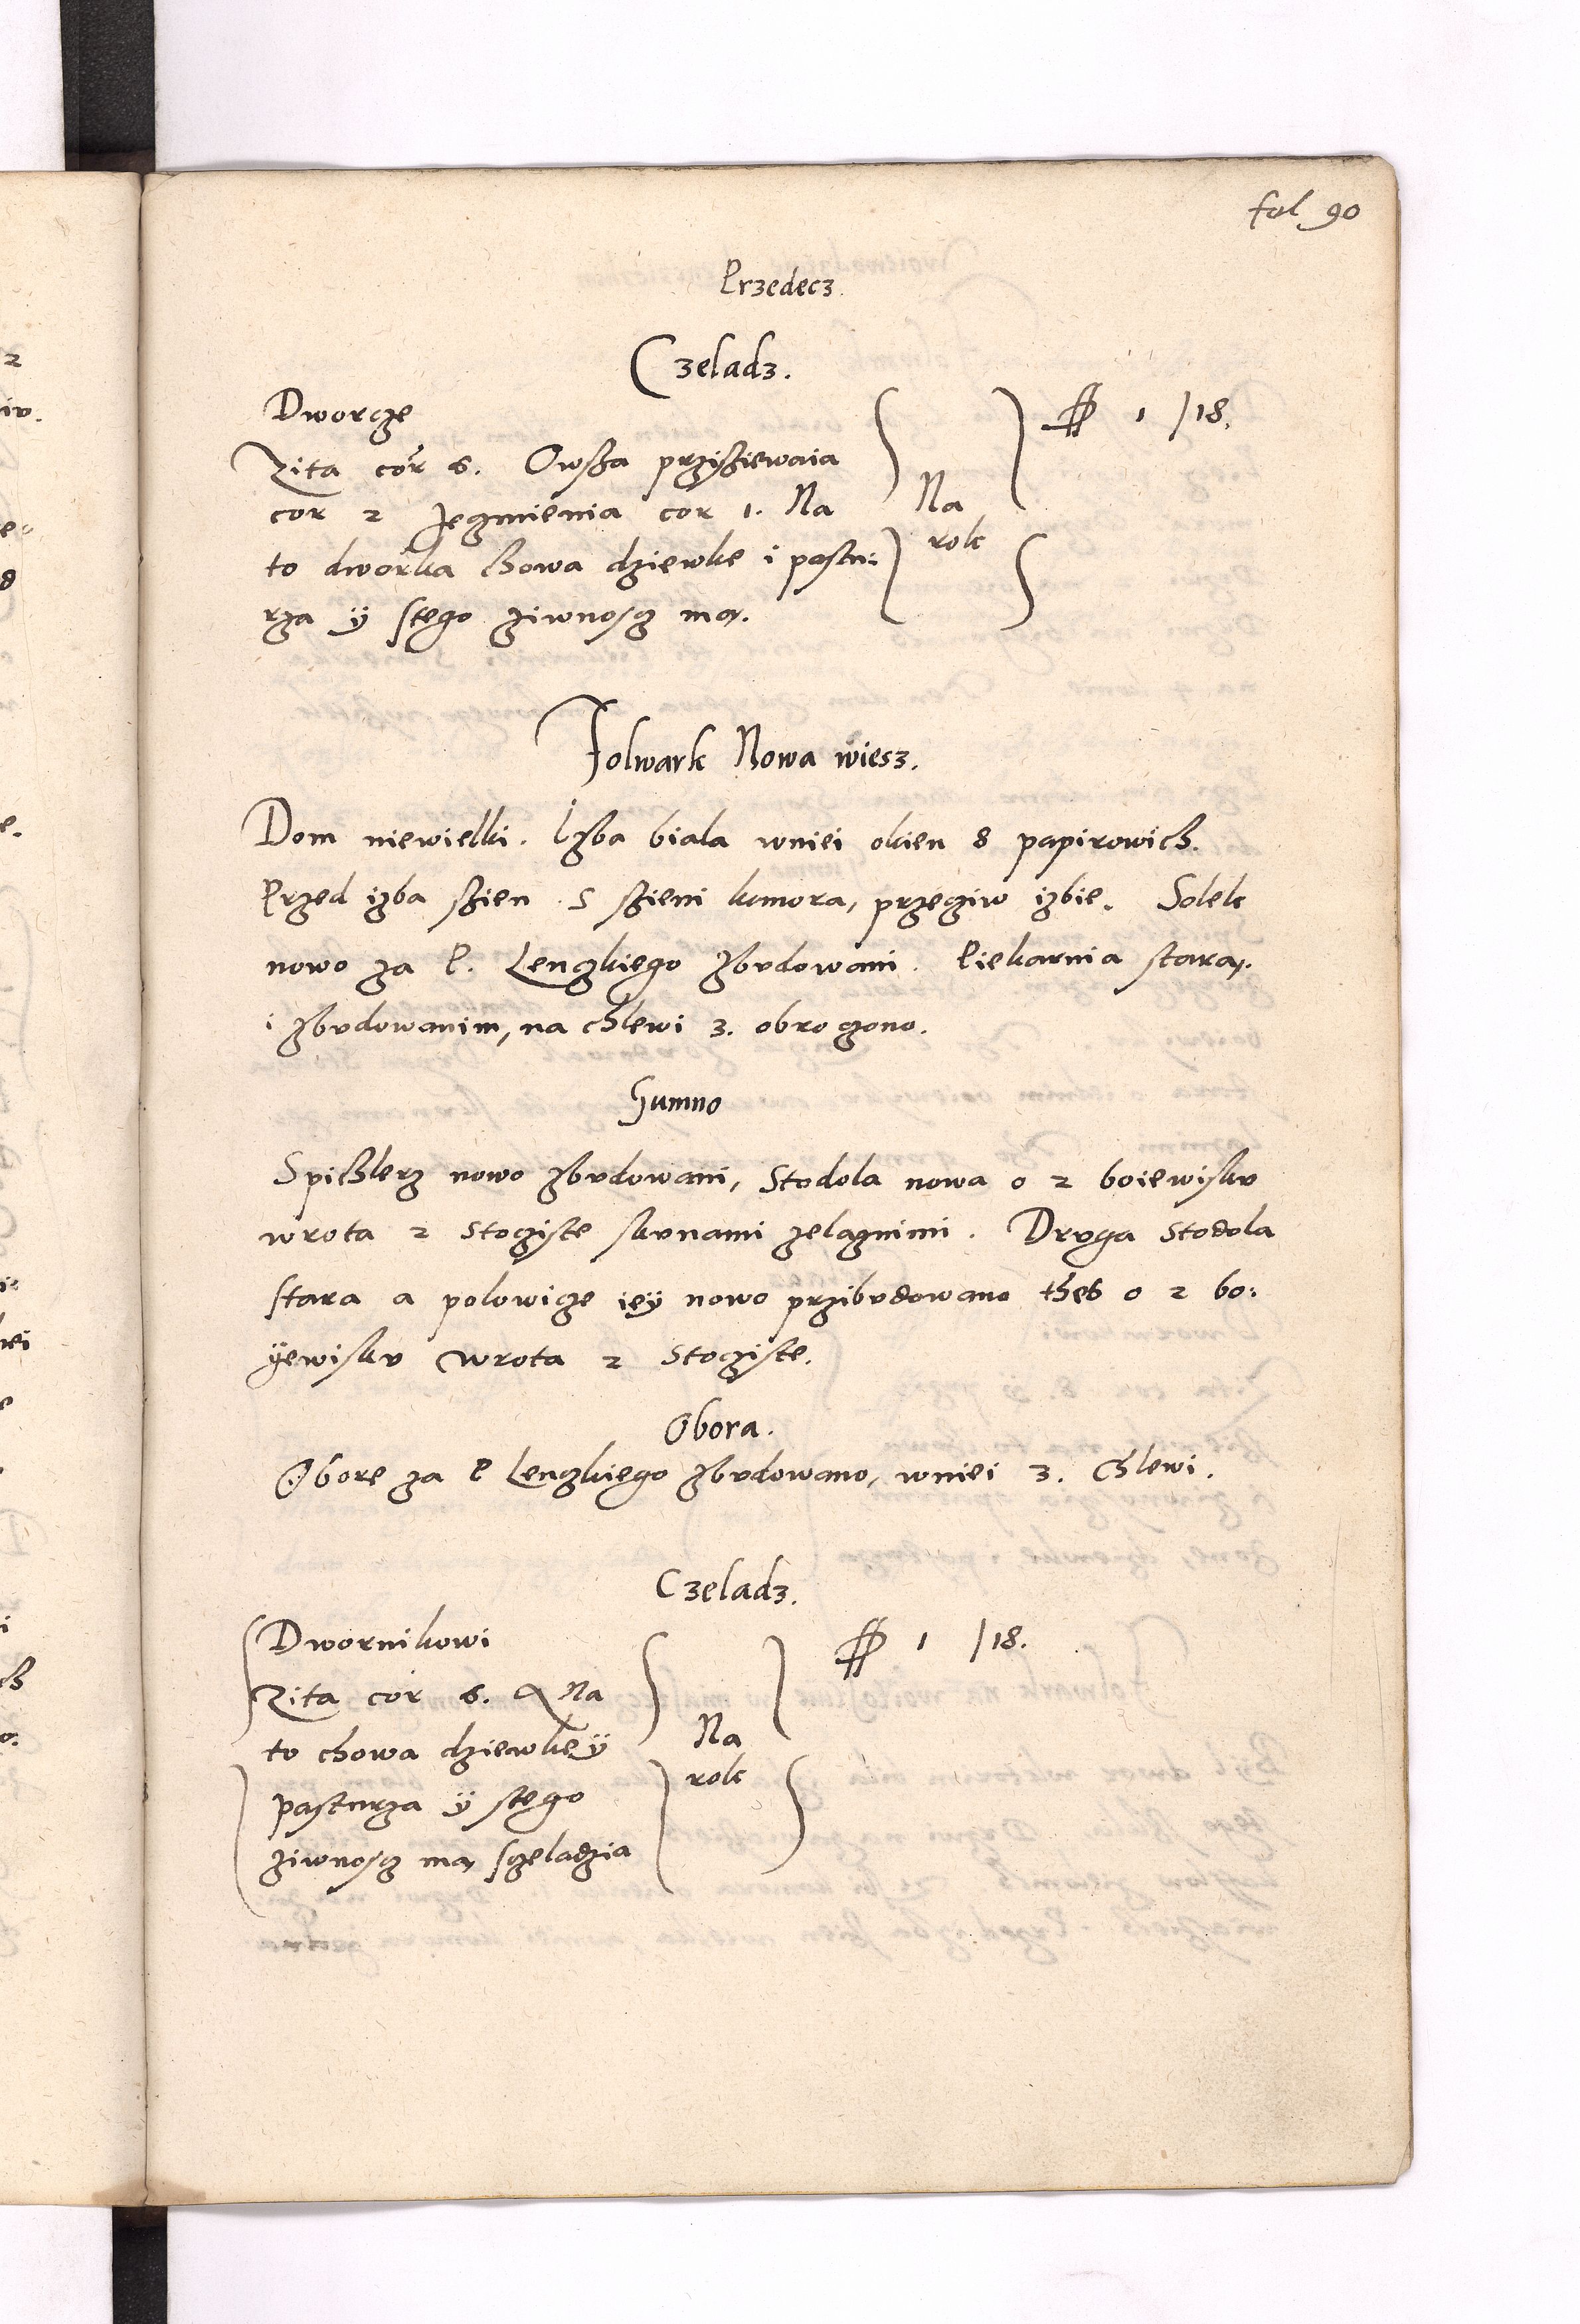 fol 90
Przedecz
Czeladz.
Dworcze
Zita cor 6. Owsza przisziewaia
cor 2 Jeczmienia cor 1. Na
to dworka chowa dziewke i pastu:
rza ÿ stego ziwnoscz ma.
Na
rok
1 /18.
Folwark Nowa wiesz.
Dom niewielki. Izba biala wniei okien 8 papirowich.
Przed izba szien S szieni komora, przecziw izbie. Solek
nowo za P. Lenczkiego zbvdowani. Piekarnia stara,
i zbvdowanim, na chlewi 3. obroczono.
Gumno
Spichlerz nowo zbvdowani, Stodola nowa o 2 boiewiskv
wrota 2 stocziste skvnami zelaznimi. Drvga stodola
stara a polowicze ieÿ nowo przibvdowano thes o 2 bo:
ÿewiskv wrota 2 stocziste.
Obora.
Obore za P Lenczkiego zbvdowano, wniei 3. Chlewi.
Czeladz.
Dwornikowi
Zita cor 6. Na
to chowa dziewke ÿ
pasturza ÿ stego
ziwnoscz ma, sczeladzia
Na
rok
1 /18.